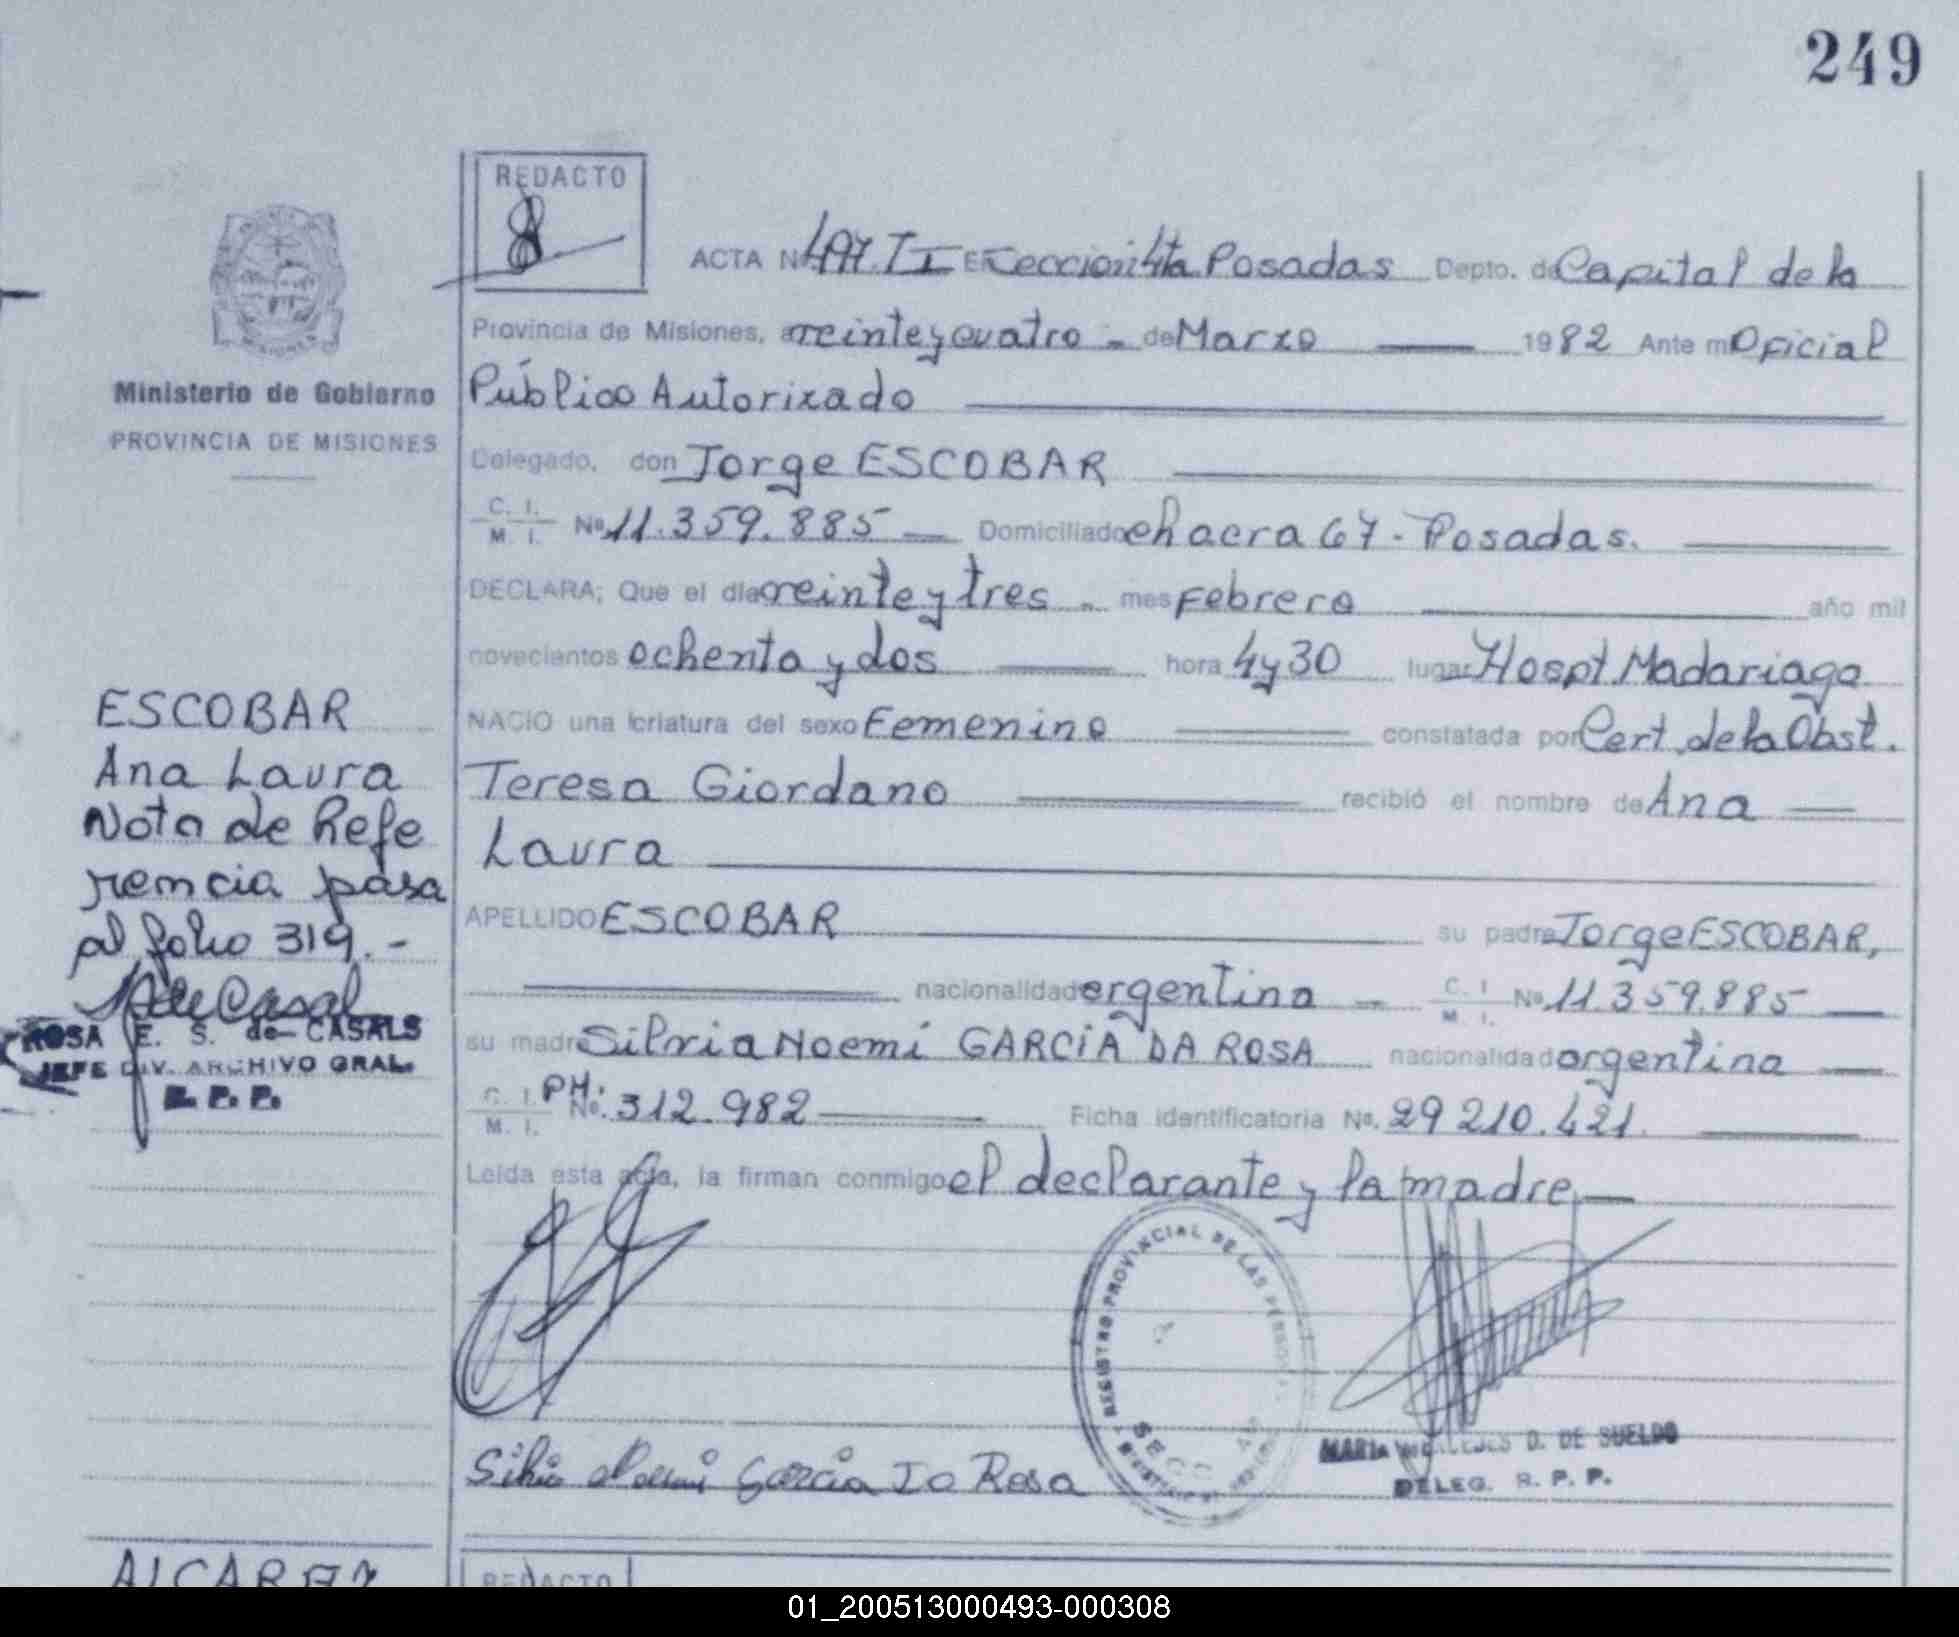 249
REDACTO
ACTA Nº 497. T I En Seccion 4ta Posadas Depto. de Capital de la
Provincia de Misiones, a veinte y cuatro - de Marzo 1982 Ante mi Oficial
Ministerio de Gobierno
Público Autorizado
PROVINCIA DE MISIONES
Delegado, don Jorge ESCOBAR
C. I.
M. I. Nº 11.359.885 Domiciliado chacra 67 - Posadas.
DECLARA; Que el día veinte y tres - mes Febrero año mil
novecientos ochenta y dos hora 4 y 30 lugar Hospt. Madariaga
NACIO una criatura del sexo Femenino constatada por Cert. de la Obst.
Teresa Giordano recibió el nombre de Ana
Laura
APELLIDO ESCOBAR su padre Jorge ESCOBAR,
nacionalidad argentina C. I.
M. I. Nº 11.359.885
su madre Silvia Noemí GARCIA DA ROSA nacionalidad argentina
C. I.
M. I. PH: Nº. 312.982 Ficha identificatoria Nº. 29 210.421.
Leída esta acta, la firman conmigo el declarante y la madre
ESCOBAR
Ana Laura
Nota de Refe
rencia pasa
al folio 319.-
ROSA E. S. de CASALS
JEFE DIV. ARCHIVO GRAL.
R. P. P.
REGISTRO PROVINCIAL DE LAS PERSONAS
SECC
Silvia Noemi Garcia Da Rosa
MARIA D. DE SUELDO
DELEG. R. P. P.
ALCARAZ
REDACTO
01_200513000493-000308